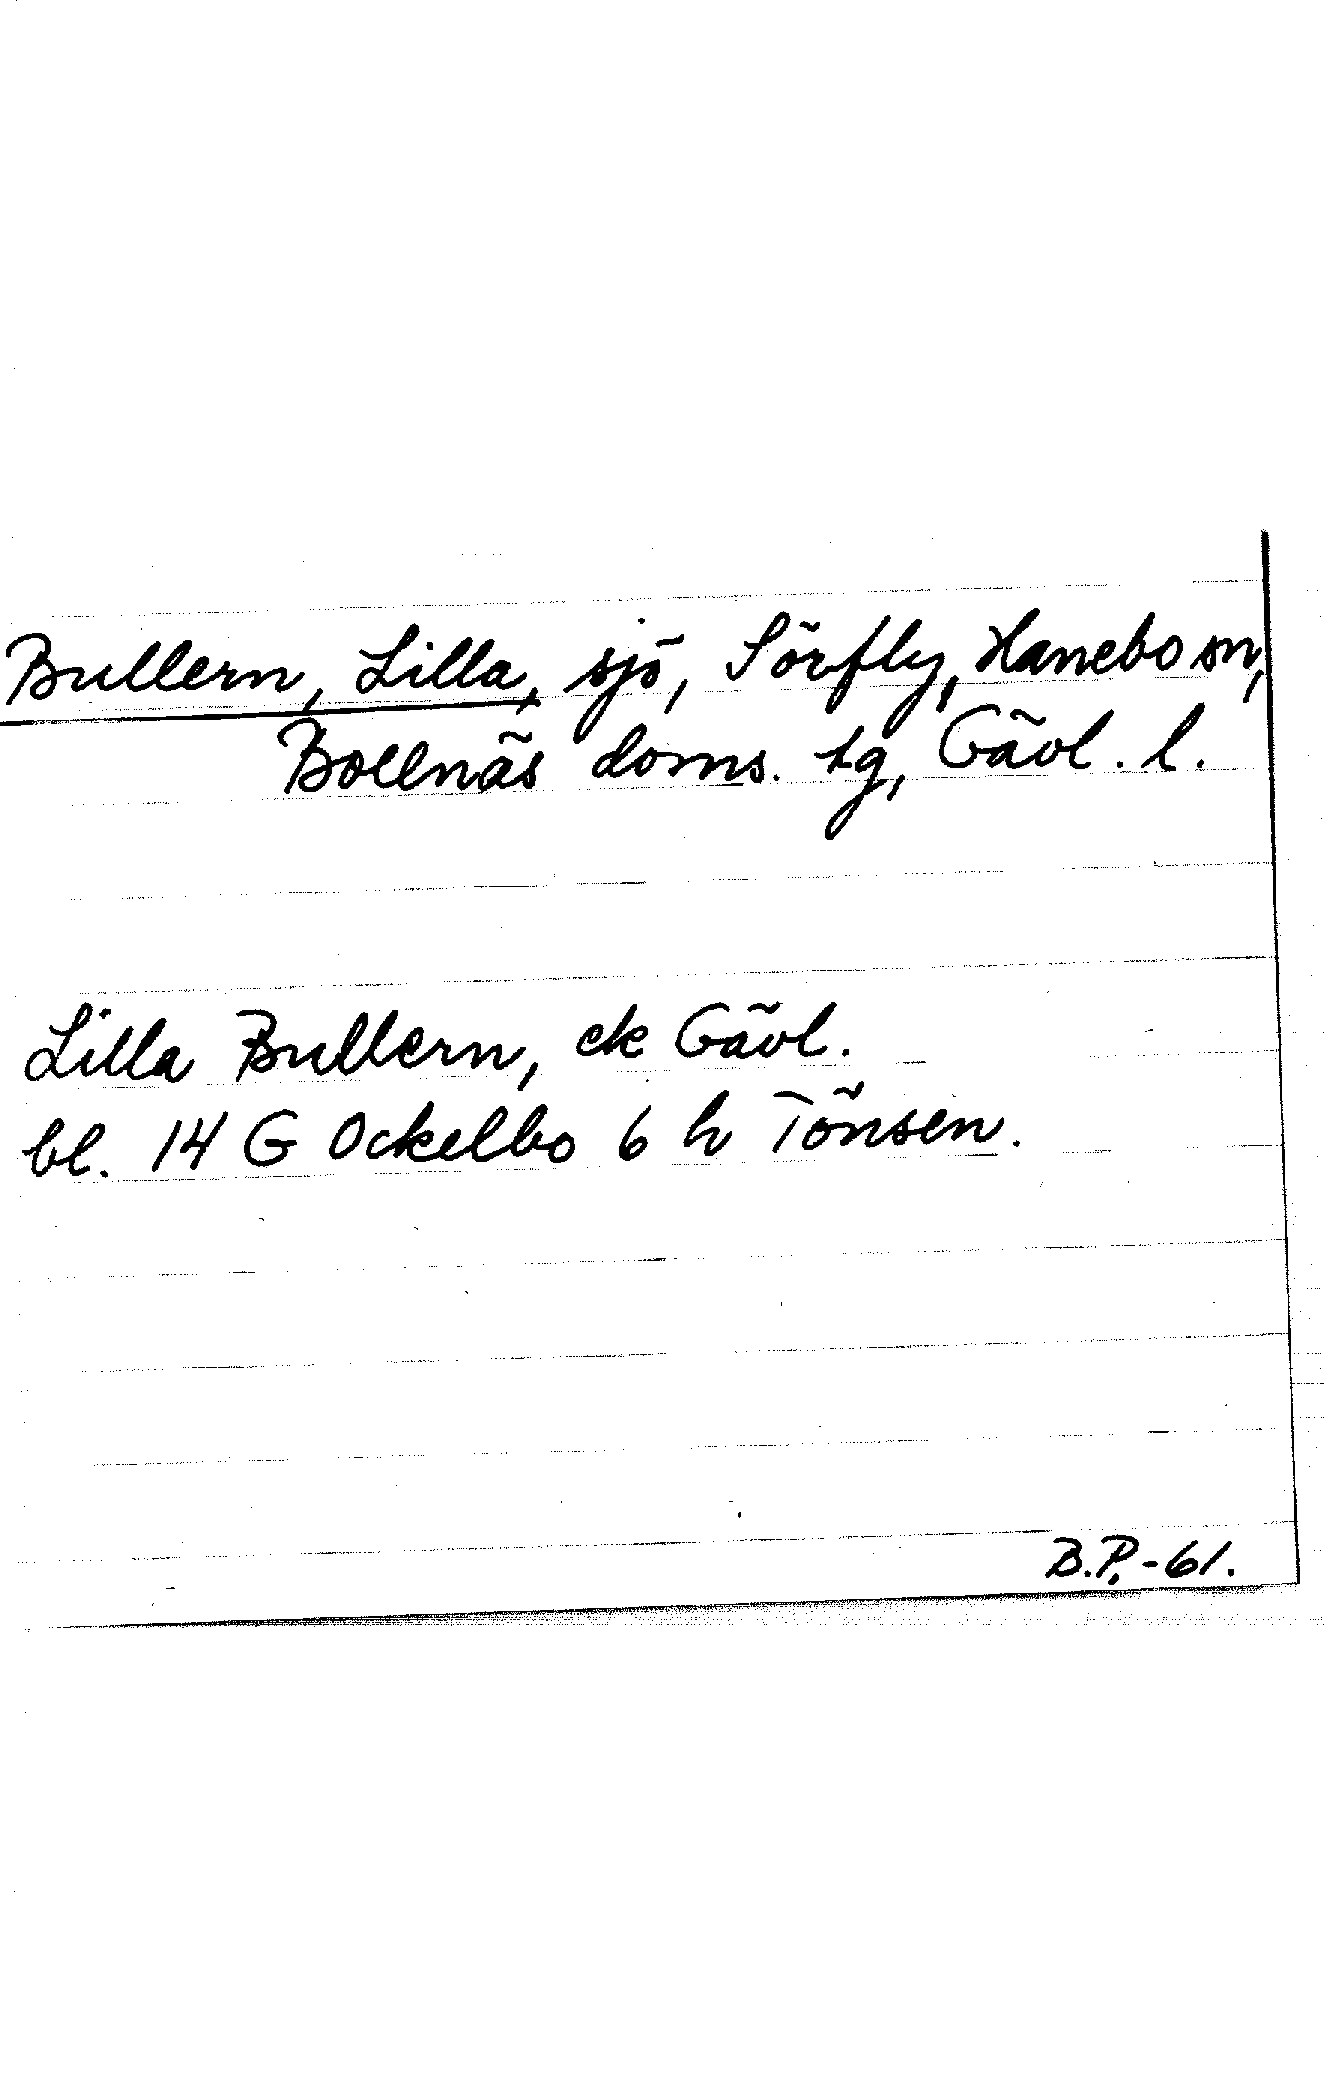 Bullern, Lilla, sjö, Sörfly, Hanebo sn,
Bollnäs doms. tg, Gävl. l.
Lilla Bullern, ek Gävl.
bl. 14 G Ockelbo 6 h Tönsen.
B.P. -61.